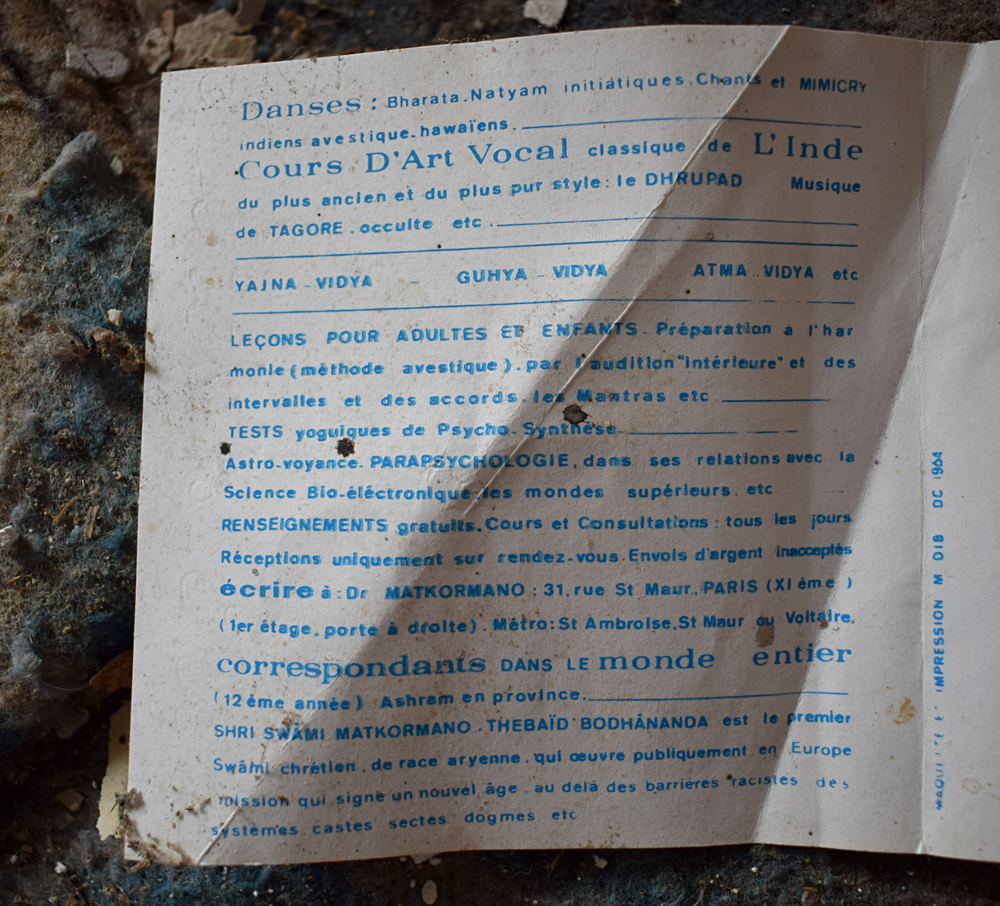 Danses : Bharata.Natyam initiatiques.Chants et MIMICRY
indiens avestique.hawaïens.
Cours D'Art Vocal classique de L'Inde
du plus ancien et du plus pur style: le DHRUPAD Musique
de TAGORE .occulte etc.
YAJNA - VIDYA - GUHYA - VIDYA ATMA - VIDYA etc
LEÇONS POUR ADULTES ET ENFANTS. Préparation à l'har
monie (méthode avestique). par l'audition "intérieure" et des
intervalles et des accords. les Mantras etc
TESTS yoguiques de Psycho-Synthèse
Astro-voyance. PARAPSYCHOLOGIE, dans ses relations avec la
Science Bio-éléctronique,les mondes supérieurs. etc
RENSEIGNEMENTS gratuits.Cours et Consultations : tous les jours
Réceptions uniquement sur rendez-vous.Envois d'argent inacceptés
écrire à : Dr MATKORMANO : 31, rue St Maur, PARIS (XI ème )
(1er étage, porte à droite). Métro: St Ambroise,St Maur ou Voltaire.
correspondants DANS LE monde entier
(12ème année) Ashram en province.
SHRI SWÂMI MATKORMANO - THEBAÏD' BODHÂNANDA est le premier
Swâmi chrétien , de race aryenne . qui œuvre publiquement en Europe
mission qui signe un nouvel âge . au delà des barrières racistes des
systèmes castes sectes dogmes etc
MAQUETTE ET IMPRESSION M DIB DC 1964